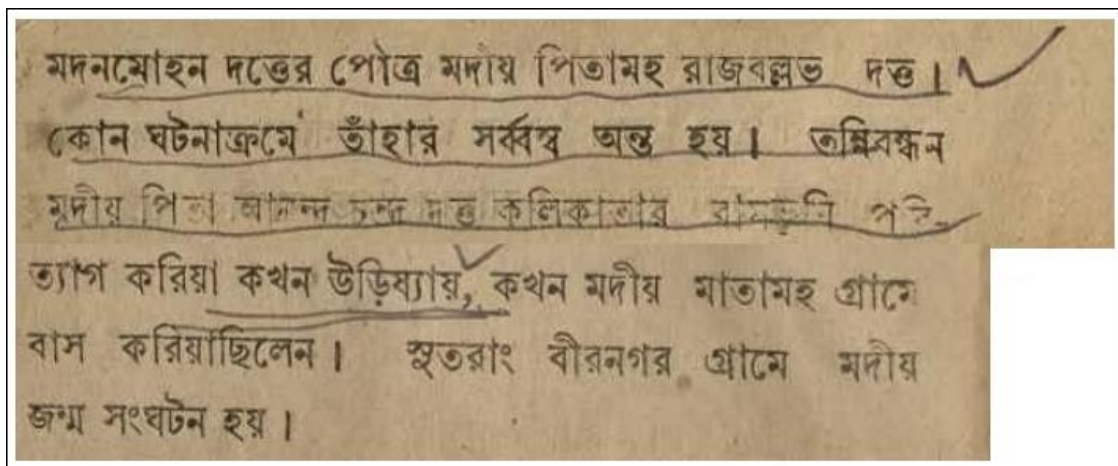 মদনমোহন দত্তের পৌত্র মদীয় পিতামহ রাজবল্লভ দত্ত।
কোন ঘটনাক্রমে তাঁহার সর্ব্বস্ব অন্ত হয়। তন্নিবন্ধন
মদীয় পিতা আনন্দ চন্দ্র দত্ত কলিকাতার বাসভূমি পরি-
ত্যাগ করিয়া কখন উড়িষ্যায়, কখন মদীয় মাতামহ গ্রামে
বাস করিয়াছিলেন। সুতরাং বীরনগর গ্রামে মদীয়
জন্ম সংঘটন হয়।